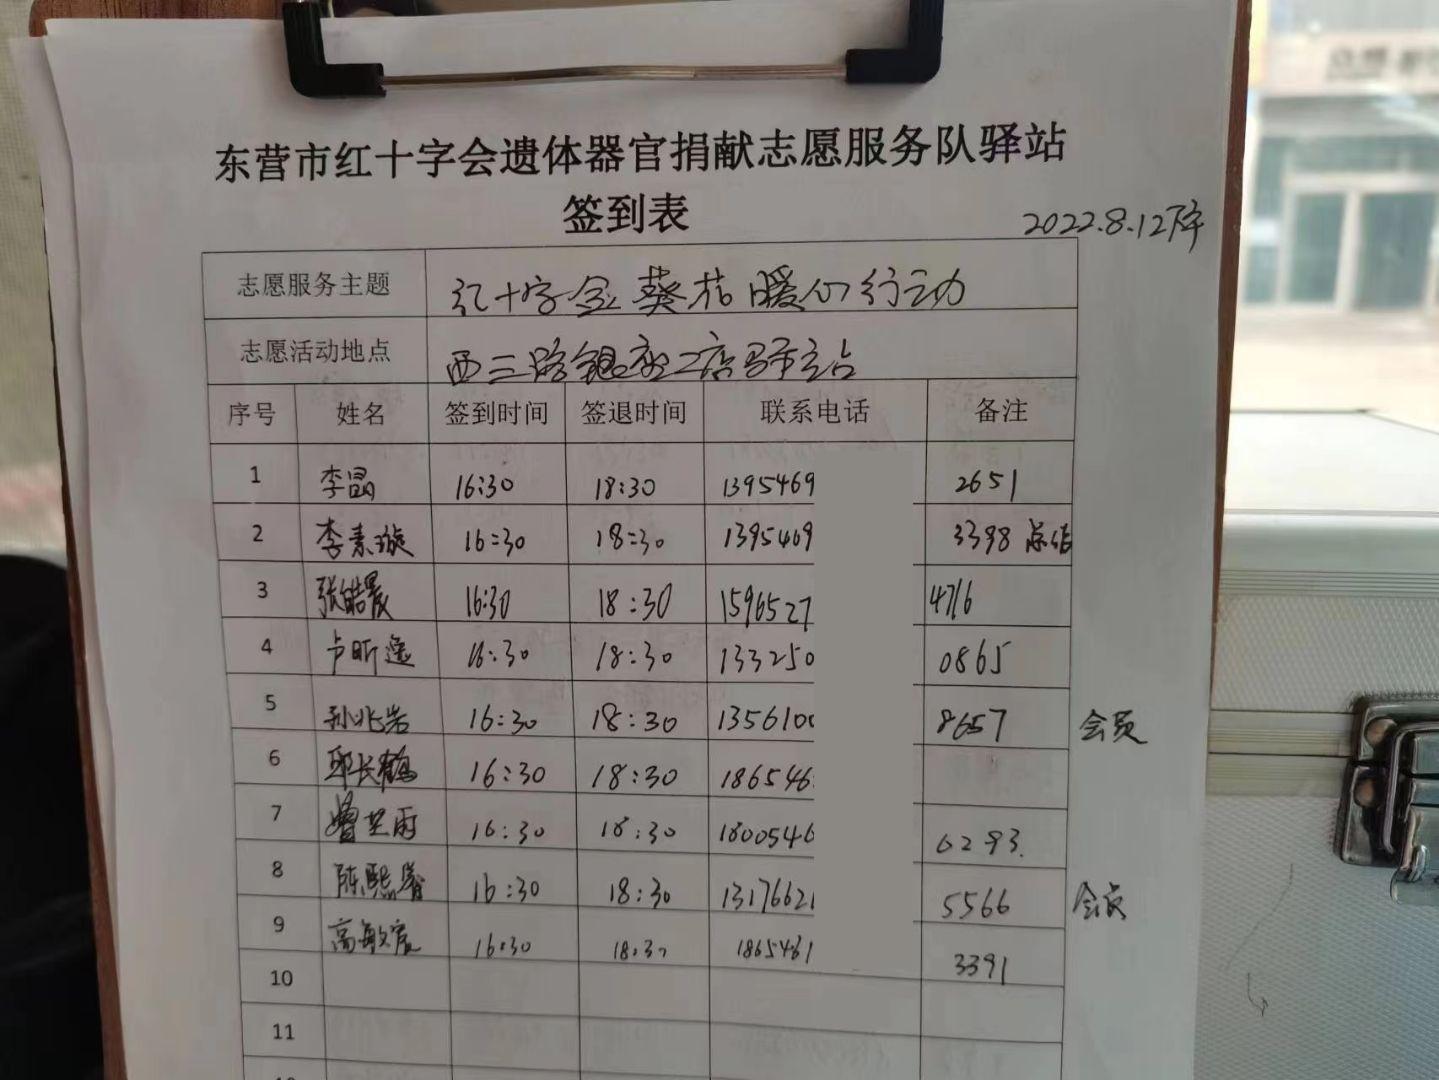 东营市红十字会遗体器官捐献志愿服务队驿站
签到表
2022.8.12下午
志愿服务主题 红十字会葵花暖心行动
志愿活动地点 西三路银座二店驿站
序号 姓名 签到时间 签退时间 联系电话 备注
1 李晶 16:30 18:30 1395469 2651
2 李素璇 16:30 18:30 1395469 3398
3 张皓晸 16:30 18:30 1596527 4716
4 卢昕逸 16:30 18:30 133250 0865
5 孙兆岩 16:30 18:30 1356100 8657 会员
6 长鹤 16:30 18:30 186546
7 曾芷雨 16:30 18:30 1800546 6293.
8 陈熙睿 16:30 18:30 13176621 5566 会员
9 高敏宸 16:30 18:30 1865461 3391
10
11